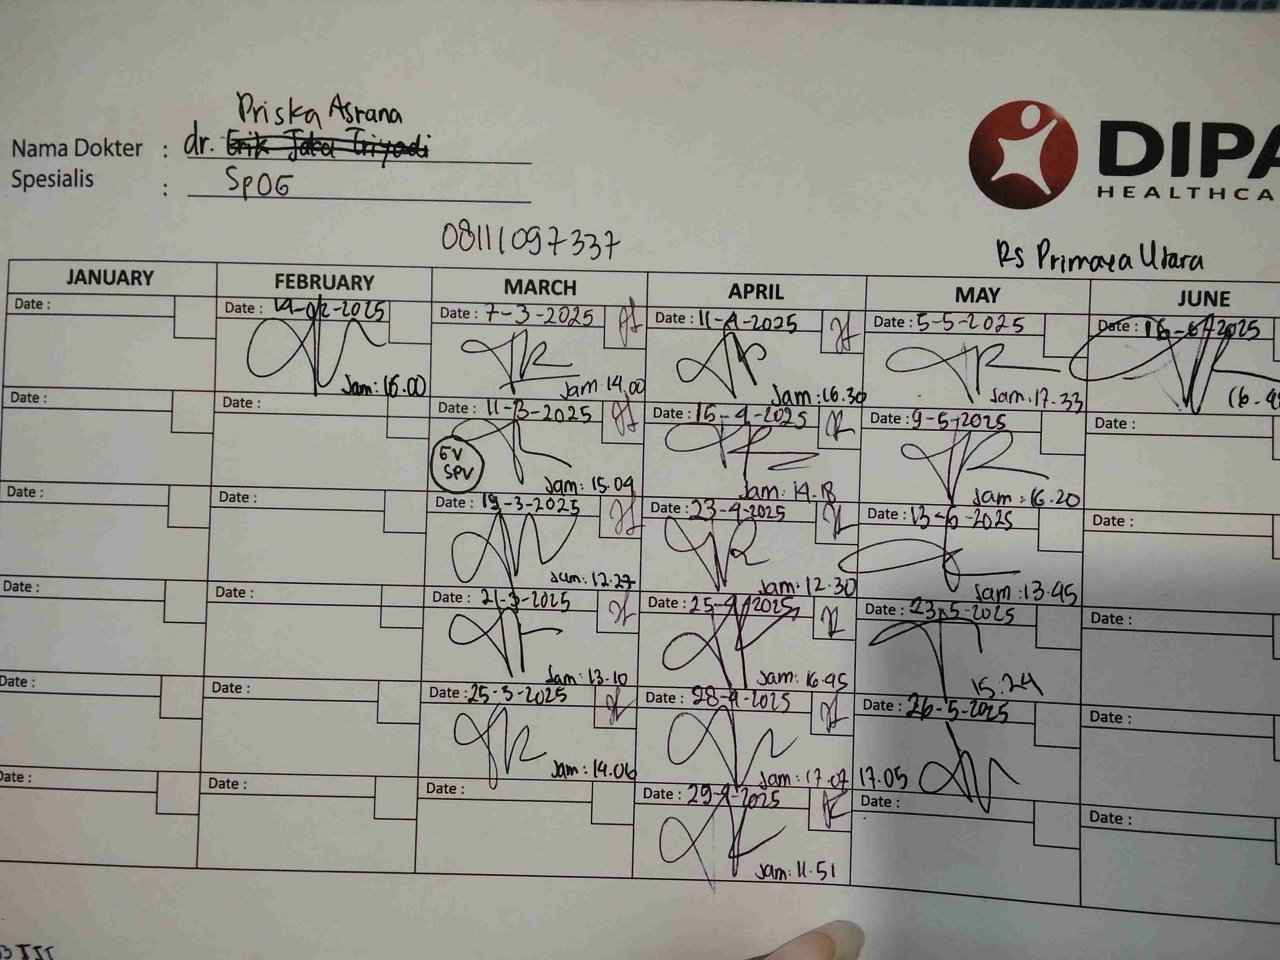 Priska Asrana
Nama Dokter : dr. Erik Jaka Triyadi
Spesialis : SpOG
DIPA
HEALTHCA
08111097337
Rs Primaya Utara
JANUARY FEBRUARY MARCH APRIL MAY JUNE
Date : Date : 14-02-2025 Date : 7-3-2025 Date : 11-4-2025 Date : 5-5-2025 Date : 16-6-2025
Jam: 16.00 Jam 14.00 Jam: 16.30 Jam: 17.33
Date : Date : Date : 11-3-2025 Date : 15-4-2025 Date : 9-5-2025 Date :
GV
SPV
Jam: 15.09 Jam: 14.18 Jam: 16.20
Date : Date : Date : 19-3-2025 Date : 23-4-2025 Date : 13-5-2025 Date :
Jam: 12.27 Jam: 12.30 Jam: 13.45
Date : Date : Date : 21-3-2025 Date : 25-4-2025 Date : 23-5-2025 Date :
Jam: 13.10 Jam: 16.45 15.24
Date : Date : Date : 25-3-2025 Date : 28-4-2025 Date : 26-5-2025 Date :
Jam: 14.06 Jam: 17.07 17.05
Date : Date : Date : Date : 29-4-2025 Date : Date :
Jam: 11.51